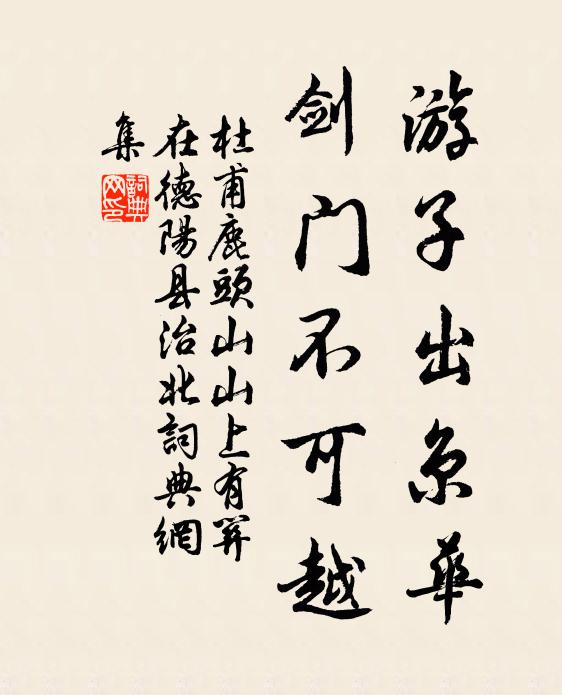 游子出京華
劍门不可越
杜甫鹿頭山山上有關
在德陽县治北詞典網
集
詞典
网印